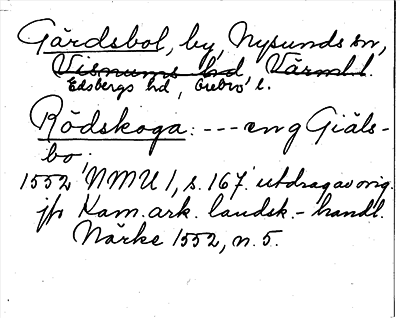 Gårdsbol, by, Nysunds sn,
Visnums hd, Värml.
Edsbergs hd, Örebro l.
Rödskoga: --- eng Giäls-
bo;
1552, NMU 1, s. 167. utdrag av orig.
jfr Kam. ark. landsk.-handl.
Närke 1552, n. 5.